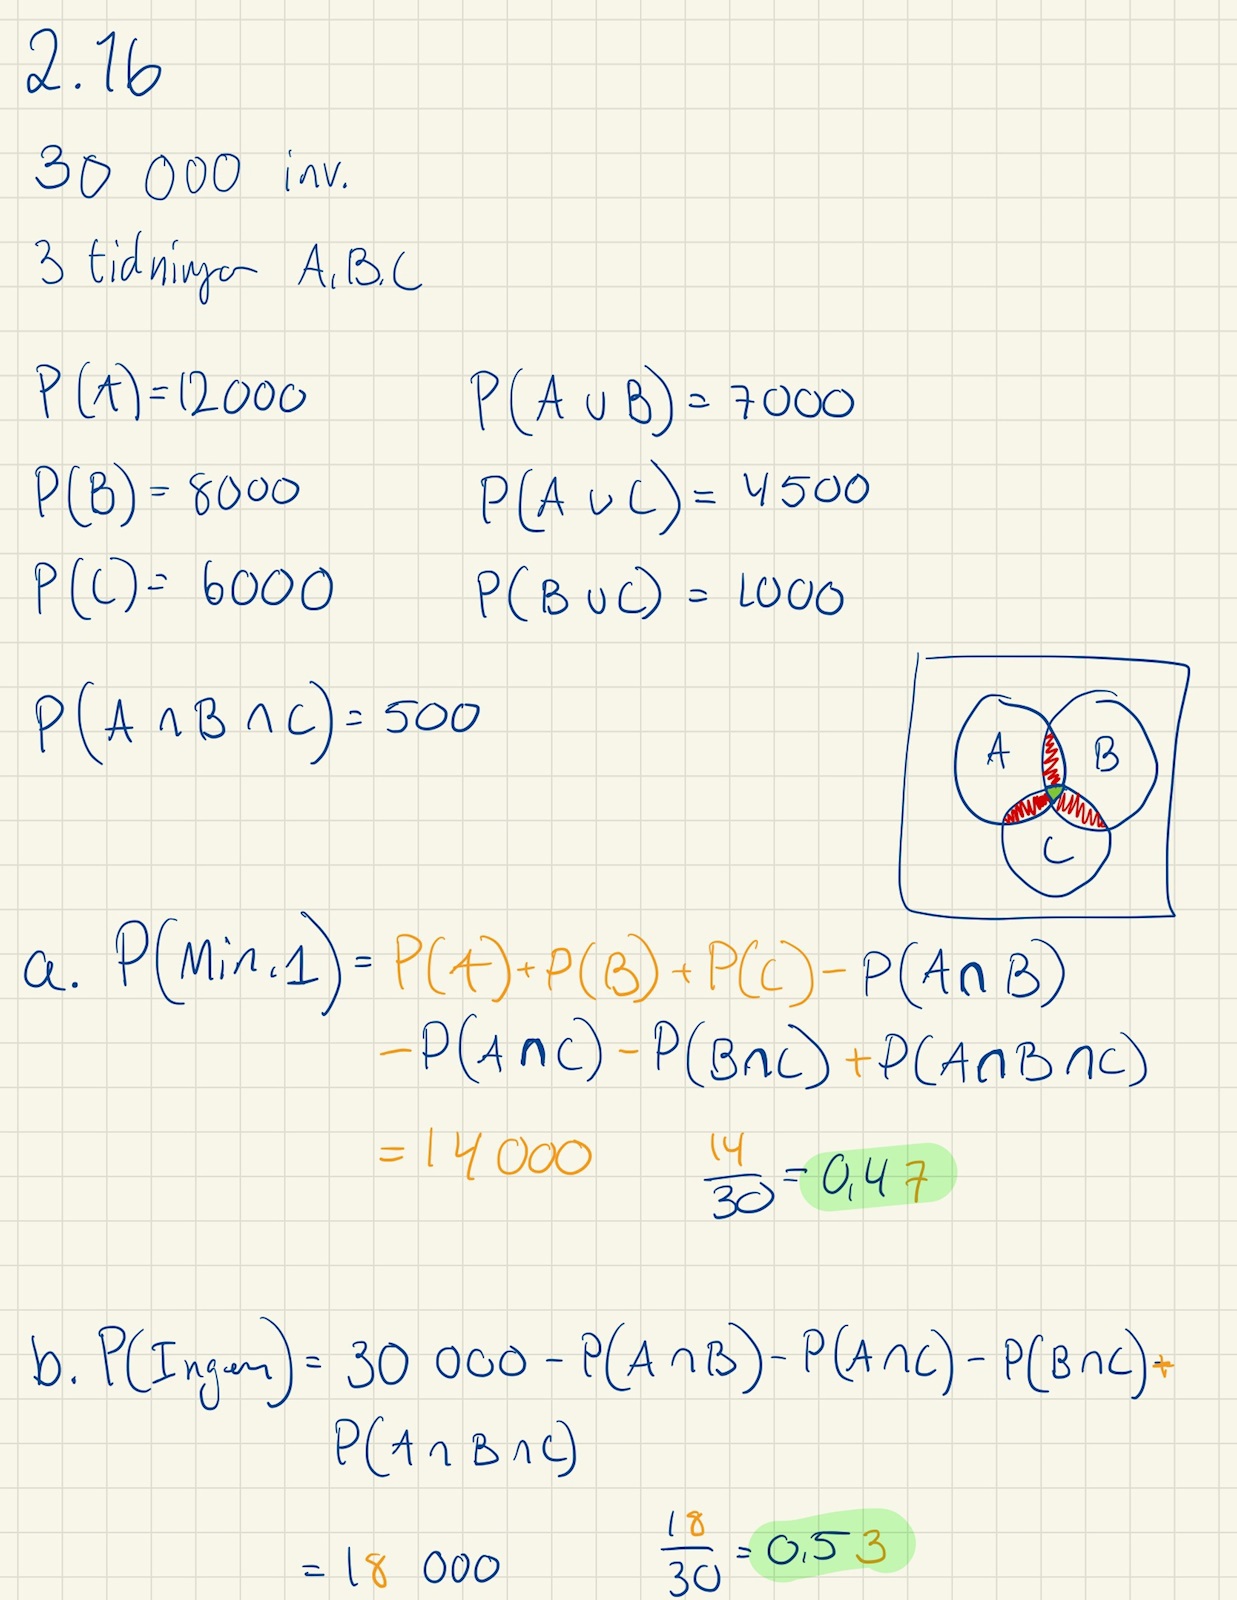 2.16
30 000 inv.
3 tidningar A, B, C
P(A)=12000
P(A ∪ B) = 7000
P(B) = 8000
P(A ∪ C) = 4500
P(C) = 6000
P(B ∪ C) = 1000
P(A ∩ B ∩ C) = 500
A B
C
a. P(Min. 1) = P(A) + P(B) + P(C) - P(A ∩ B)
- P(A ∩ C) - P(B ∩ C) + P(A ∩ B ∩ C)
= 14 000 14/30 = 0,47
b. P(Ingen) = 30 000 - P(A ∩ B) - P(A ∩ C) - P(B ∩ C) +
P(A ∩ B ∩ C)
= 18 000 18/30 = 0,53